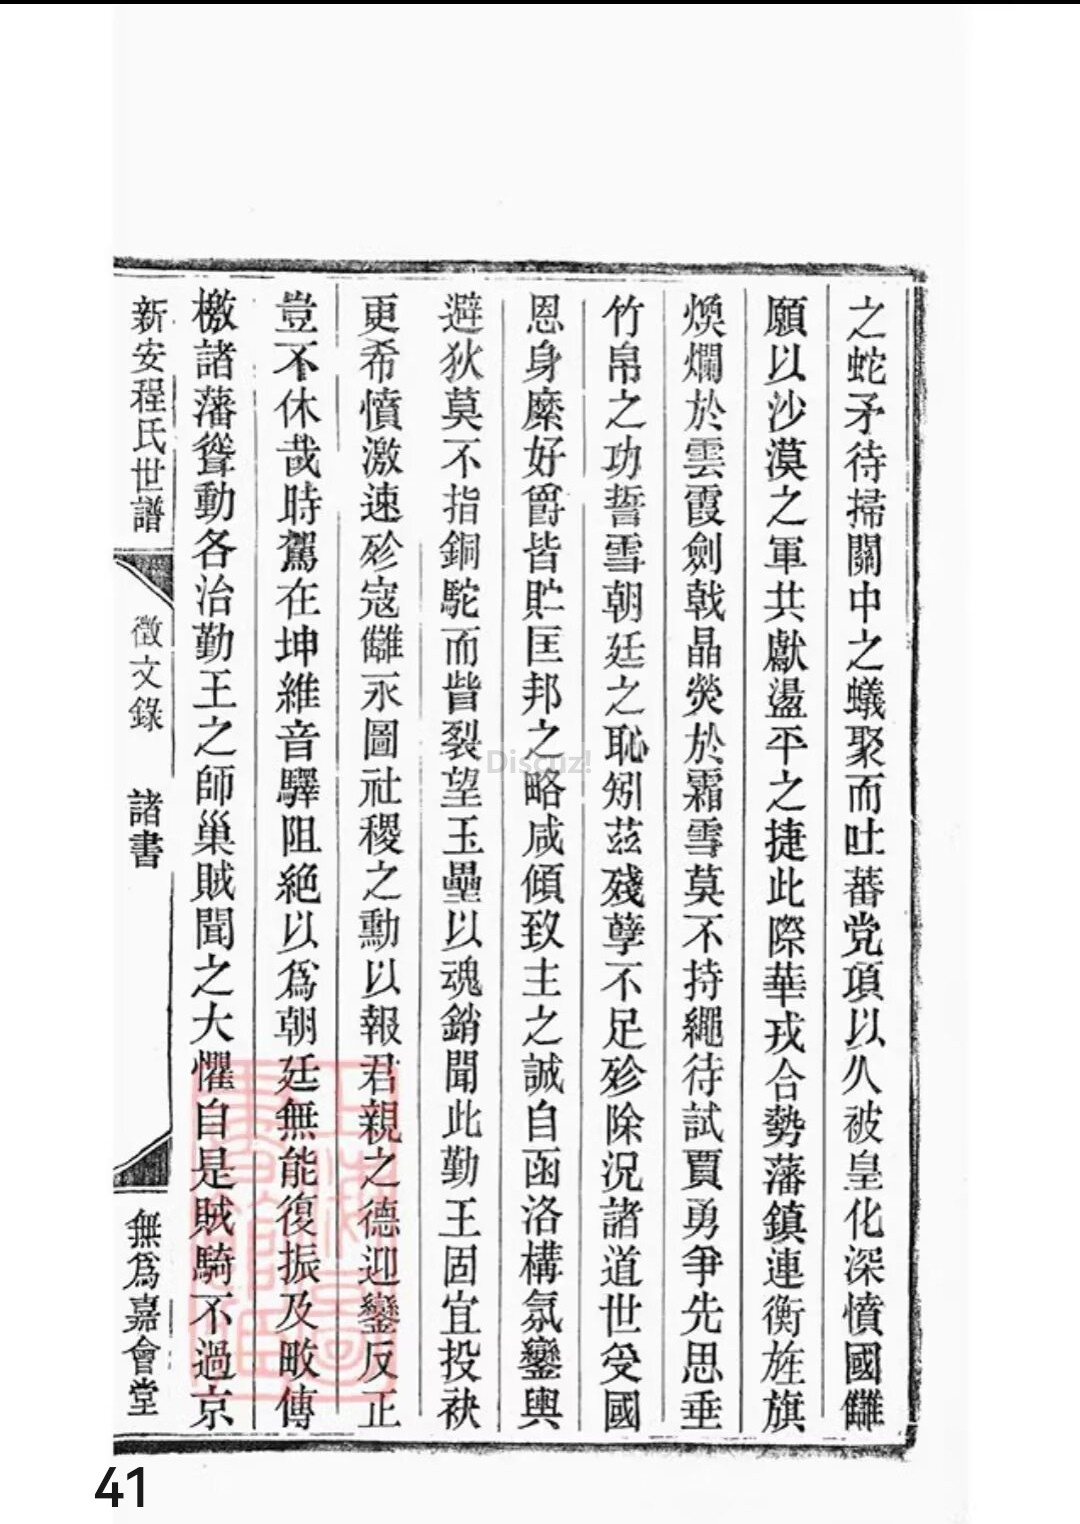 之蛇矛待掃關中之蟻聚而吐蕃党項以久被皇化深憤國讎
願以沙漠之軍共獻盪平之捷此際華戎合勢藩鎮連衡旌旗
煥爛於雲霞劍戟晶熒於霜雪莫不持繩待試賈勇爭先思垂
竹帛之功誓雪朝廷之恥矧茲殘孽不足殄除況諸道世受國
恩身縻好爵皆貯匡邦之略咸傾致主之誠自函洛構氛鑾輿
避狄莫不指銅駝而眥裂望玉壘以魂銷聞此勤王固宜投袂
更希憤激速殄寇讎永圖社稷之勳以報君親之德迎鑾反正
豈不休哉時駕在坤維音驛阻絕以爲朝廷無能復振及畋傳
檄諸藩聳動各治勤王之師巢賊聞之大懼自是賊騎不過京
新安程氏世譜 徵文錄 諸書 無爲嘉會堂
上海圖書館藏
Discuz!
41